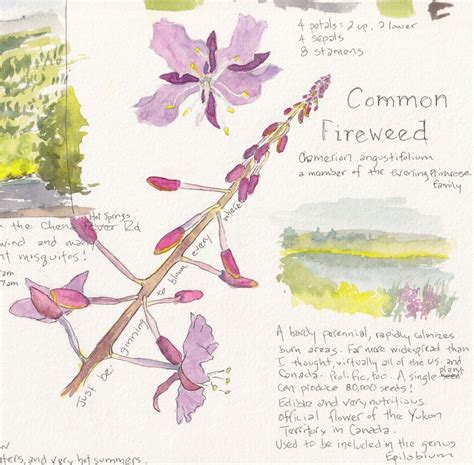 4 petals: 2 up, 2 lower
4 sepals
8 stamens
Common
Fireweed
Chamerion angustifolium
a member of the Evening Primrose
Family
n the Chena River Rd
Hot Springs
wind and many
nt misquites!
7am
7am
Just beginning to bloom everywhere
A hardy perennial, rapidly colonizes
burn areas. Far more widespread than
I thought, virtually all of the US. and
Canada. Prolific, too. A single seed plant
Can produce 80,000 seeds!
Edible and very nutritious.
Official flower of the Yukon
Territory in Canada.
Used to be included in the genus
Epilobium
ters, and very hot summers.